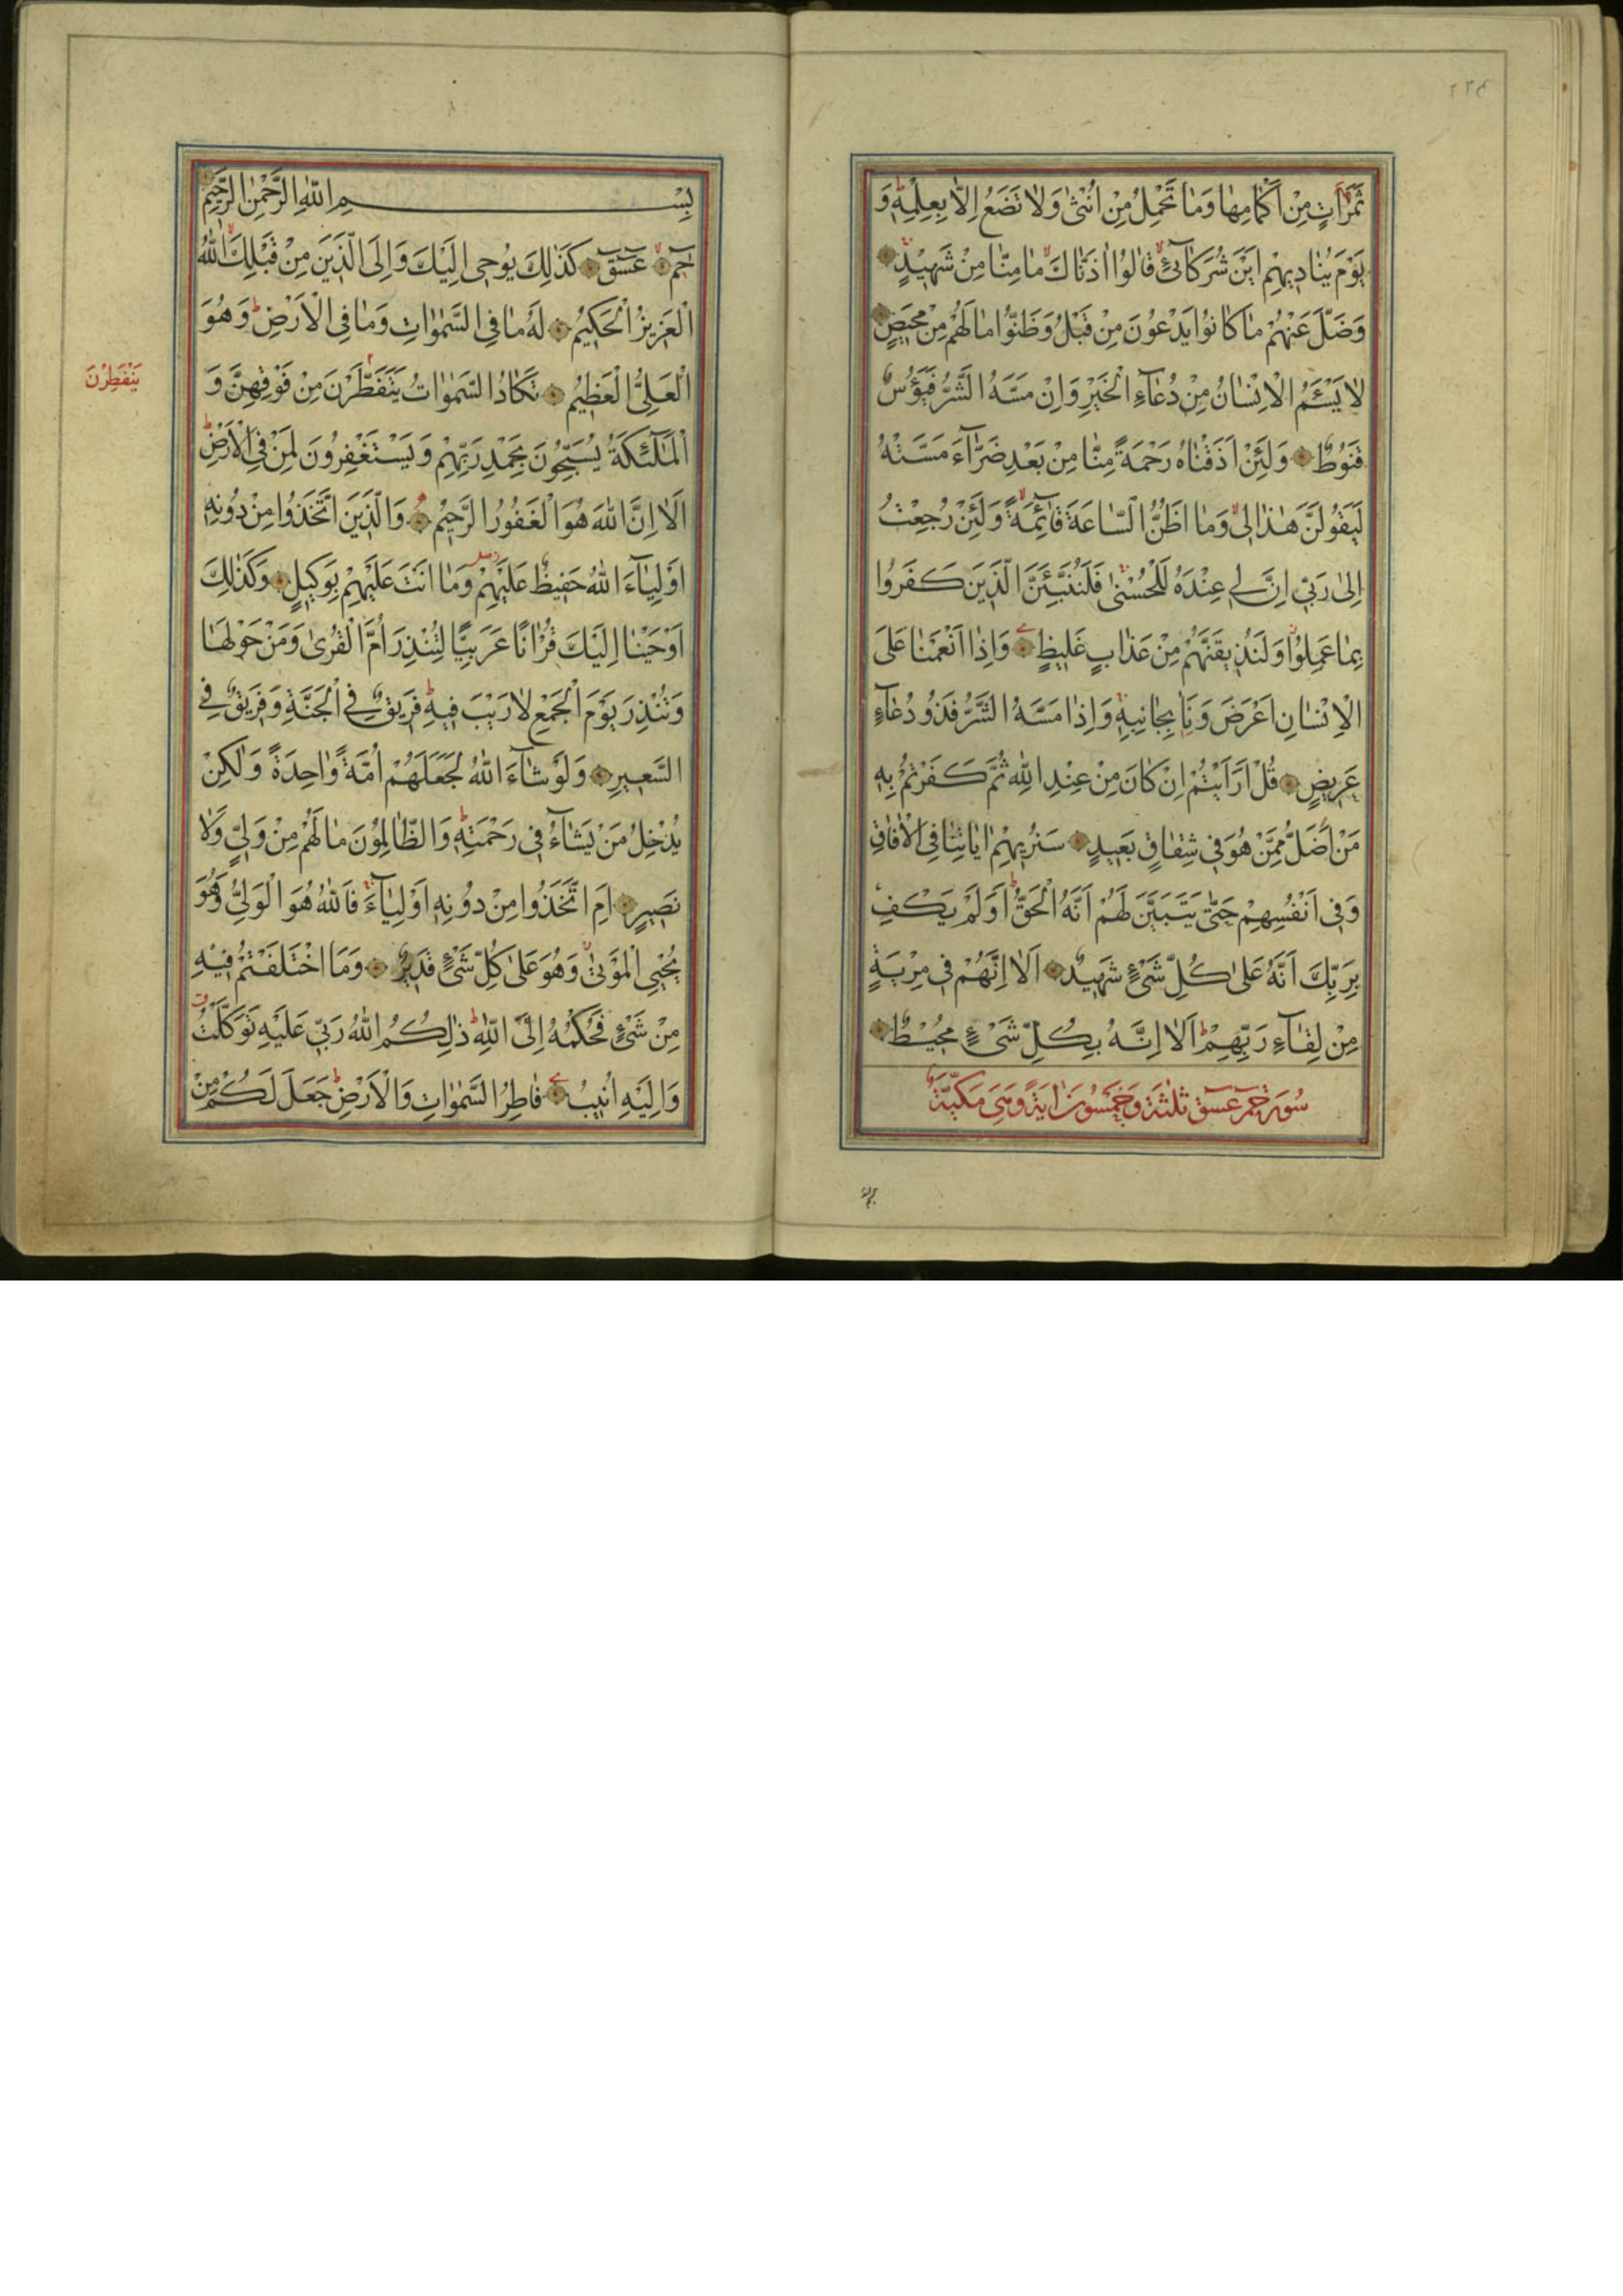 ثَمَرَاتٍ مِنْ اَكْمَامِهَا وَمَا تَحْمِلُ مِنْ اُنْثٰى وَلَا تَضَعُ اِلَّا بِعِلْمِهٖ وَ
يَوْمَ يُنَادٖيهِمْ اَيْنَ شُرَكَآئٖ قَالُوا اٰذَنَّاكَ مَا مِنَّا مِنْ شَهٖيدٍ
وَضَلَّ عَنْهُمْ مَا كَانُوا يَدْعُونَ مِنْ قَبْلُ وَظَنُّوا مَا لَهُمْ مِنْ مَحٖيصٍ
لَا يَسْـَٔمُ الْاِنْسَانُ مِنْ دُعَآءِ الْخَيْرِ وَاِنْ مَسَّهُ الشَّرُّ فَيَؤُسٌ
قَنُوطٌ وَلَئِنْ اَذَقْنَاهُ رَحْمَةً مِنَّا مِنْ بَعْدِ ضَرَّآءَ مَسَّتْهُ
لَيَقُولَنَّ هٰذَا لٖى وَمَا اَظُنُّ السَّاعَةَ قَآئِمَةً وَلَئِنْ رُجِعْتُ
اِلٰى رَبّٖى اِنَّ لٖى عِنْدَهُ لَلْحُسْنٰى فَلَنُنَبِّئَنَّ الَّذٖينَ كَفَرُوا
بِمَا عَمِلُوا وَلَنُذٖيقَنَّهُمْ مِنْ عَذَابٍ غَلٖيظٍ وَاِذَا اَنْعَمْنَا عَلَى
الْاِنْسَانِ اَعْرَضَ وَنَاٰ بِجَانِبِهٖ وَاِذَا مَسَّهُ الشَّرُّ فَذُو دُعَآءٍ
عَرٖيضٍ قُلْ اَرَاَيْتُمْ اِنْ كَانَ مِنْ عِنْدِ اللّٰهِ ثُمَّ كَفَرْتُمْ بِهٖ
مَنْ اَضَلُّ مِمَّنْ هُوَ فٖى شِقَاقٍ بَعٖيدٍ سَنُرٖيهِمْ اٰيَاتِنَا فِى الْاٰفَاقِ
وَفٖى اَنْفُسِهِمْ حَتّٰى يَتَبَيَّنَ لَهُمْ اَنَّهُ الْحَقُّ اَوَلَمْ يَكْفِ
بِرَبِّكَ اَنَّهُ عَلٰى كُلِّ شَىْءٍ شَهٖيدٌ اَلَا اِنَّهُمْ فٖى مِرْيَةٍ
مِنْ لِقَآءِ رَبِّهِمْ اَلَا اِنَّهُ بِكُلِّ شَىْءٍ مُحٖيطٌ
سُورَة حٰمٓ عٓسٓقٓ ثَلٰثَةٌ وَخَمْسُونَ اٰيَةً وَهِىَ مَكِّيَّةٌ
بِسْمِ اللّٰهِ الرَّحْمٰنِ الرَّحٖيمِ
حٰمٓ عٓسٓقٓ كَذٰلِكَ يُوحٖى اِلَيْكَ وَاِلَى الَّذٖينَ مِنْ قَبْلِكَ اللّٰهُ
الْعَزٖيزُ الْحَكٖيمُ لَهُ مَا فِى السَّمٰوَاتِ وَمَا فِى الْاَرْضِ وَهُوَ
الْعَلِىُّ الْعَظٖيمُ تَكَادُ السَّمٰوَاتُ يَتَفَطَّرْنَ مِنْ فَوْقِهِنَّ وَ
يَنْفَطِرْنَ
الْمَلٰٓئِكَةُ يُسَبِّحُونَ بِحَمْدِ رَبِّهِمْ وَيَسْتَغْفِرُونَ لِمَنْ فِى الْاَرْضِ
اَلَا اِنَّ اللّٰهَ هُوَ الْغَفُورُ الرَّحٖيمُ وَالَّذٖينَ اتَّخَذُوا مِنْ دُونِهٖ
اَوْلِيَآءَ اللّٰهُ حَفٖيظٌ عَلَيْهِمْ وَمَا اَنْتَ عَلَيْهِمْ بِوَكٖيلٍ وَكَذٰلِكَ
اَوْحَيْنَا اِلَيْكَ قُرْاٰنًا عَرَبِيًّا لِتُنْذِرَ اُمَّ الْقُرٰى وَمَنْ حَوْلَهَا
وَتُنْذِرَ يَوْمَ الْجَمْعِ لَا رَيْبَ فٖيهِ فَرٖيقٌ فِى الْجَنَّةِ وَفَرٖيقٌ فِى
السَّعٖيرِ وَلَوْ شَآءَ اللّٰهُ لَجَعَلَهُمْ اُمَّةً وَاحِدَةً وَلٰكِنْ
يُدْخِلُ مَنْ يَشَآءُ فٖى رَحْمَتِهٖ وَالظَّالِمُونَ مَا لَهُمْ مِنْ وَلِىٍّ وَلَا
نَصٖيرٍ اَمِ اتَّخَذُوا مِنْ دُونِهٖ اَوْلِيَآءَ فَاللّٰهُ هُوَ الْوَلِىُّ وَهُوَ
يُحْيِى الْمَوْتٰى وَهُوَ عَلٰى كُلِّ شَىْءٍ قَدٖيرٌ وَمَا اخْتَلَفْتُمْ فٖيهِ
مِنْ شَىْءٍ فَحُكْمُهُ اِلَى اللّٰهِ ذٰلِكُمُ اللّٰهُ رَبّٖى عَلَيْهِ تَوَكَّلْتُ
وَاِلَيْهِ اُنٖيبُ فَاطِرُ السَّمٰوَاتِ وَالْاَرْضِ جَعَلَ لَكُمْ مِنْ